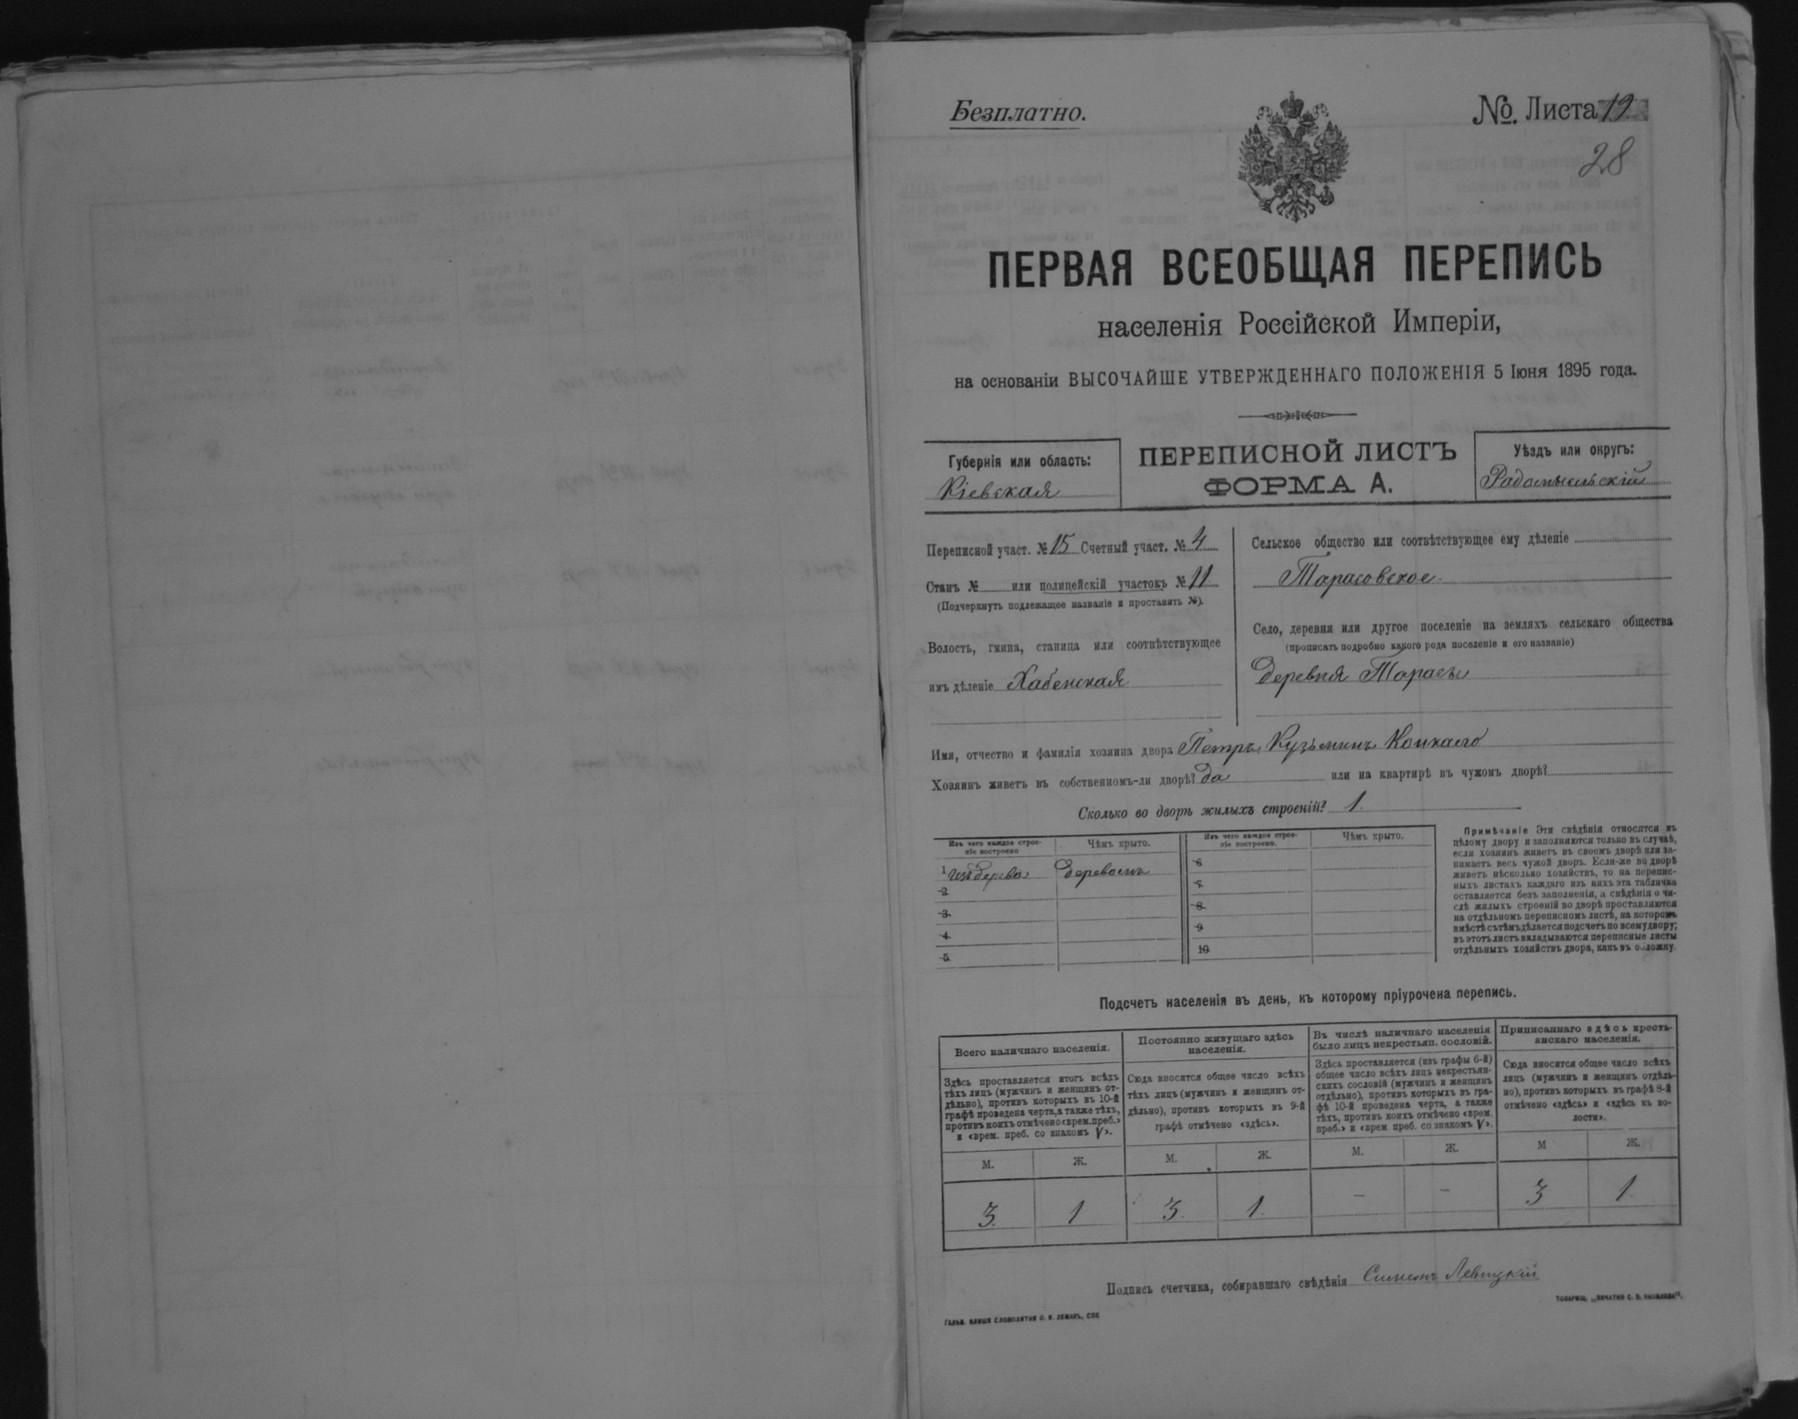 Безплатно.
№. Листа 19.
28
ПЕРВАЯ ВСЕОБЩАЯ ПЕРЕПИСЬ
населенія Россійской Имперіи,
на основаніи ВЫСОЧАЙШЕ УТВЕРЖДЕННАГО ПОЛОЖЕНІЯ 5 Іюня 1895 года.
Губернія или область:
Кіевская
ПЕРЕПИСНОЙ ЛИСТЪ
ФОРМА А.
Уѣздъ или округъ:
Радомысльскій
Переписной участ. № 15 Счетный участ. № 4
Станъ № или полицейскій участокъ № 11
(Подчеркнуть подлежащее названіе и проставить №).
Волость, гмина, станица или соотвѣтствующее
имъ дѣленіе Хабенская
Сельское общество или соотвѣтствующее ему дѣленіе
Тарасовское.
Село, деревня или другое поселеніе на земляхъ сельскаго общества
(прописать подробно какого рода поселеніе и его названіе)
Деревня Тарасы
Имя, отчество и фамилія хозяина двора Петръ Кузьминъ
Хозяинъ живетъ въ собственномъ-ли дворѣ? да или на квартирѣ въ чужомъ дворѣ?
Сколько во дворѣ жилыхъ строеній? 1.
Изъ чего каждое строе-
ніе построено
Чѣмъ крыто.
1 изъ дерева Деревомъ
2.
3.
4.
5.
Изъ чего каждое строе-
ніе построено.
Чѣмъ крыто.
6
7.
8.
9
10
Примѣчаніе Эти свѣдѣнія относятся къ
цѣлому двору и заполняются только въ случаѣ,
если хозяинъ живетъ въ своемъ дворѣ или за-
нимаетъ весь чужой дворъ. Если-же во дворѣ
живетъ нѣсколько хозяйствъ, то на перепис-
ныхъ листахъ каждаго изъ нихъ эта табличка
оставляется безъ заполненія, а свѣдѣнія о чи-
слѣ жилыхъ строеній во дворѣ проставляются
на отдѣльномъ переписномъ листѣ, на которомъ
вмѣстѣ съ тѣмъ дѣлается подсчетъ по всему двору;
въ этотъ листъ вкладываются переписные листы
отдѣльныхъ хозяйствъ двора, какъ въ обложку.
Подсчетъ населенія въ день, къ которому пріурочена перепись.
Всего наличнаго населенія.
Здѣсь проставляется итогъ всѣхъ
тѣхъ лицъ (мужчинъ и женщинъ от-
дѣльно), противъ которыхъ въ 10-й
графѣ проведена черта, а также тѣхъ,
противъ коихъ отмѣчено «врем. преб.»
и «врем. преб. со знакомъ V».
М. Ж.
3. 1
Постоянно живущаго здѣсь
населенія.
Сюда вносится общее число всѣхъ
тѣхъ лицъ (мужчинъ и женщинъ от-
дѣльно), противъ которыхъ въ 9-й
графѣ отмѣчено «здѣсь».
М. Ж.
3. 1.
Въ числѣ наличнаго населенія
было лицъ некрестьян. сословій.
Здѣсь проставляется (изъ графы 6-й)
общее число всѣхъ лицъ некрестьян-
скихъ сословій (мужчинъ и женщинъ
отдѣльно), противъ которыхъ въ гра-
фѣ 10-й проведена черта, а также
тѣхъ, противъ коихъ отмѣчено «врем.
преб.» и «врем преб. со знакомъ V».
М. Ж.
– –
Приписаннаго здѣсь кресть-
янскаго населенія.
Сюда вносится общее число всѣхъ
лицъ (мужчинъ и женщинъ отдѣль-
но), противъ которыхъ въ графѣ 8-й
отмѣчено «здѣсь» и «здѣсь къ во-
лости».
М Ж.
3 1
Подпись счетчика, собиравшаго свѣдѣнія Симонъ Левицкій
ГАЛЬВ. КЛИШЕ СЛОВОЛИТНИ О. И. ЛЕМАНЪ, СПБ
ТОВАРИЩ. „ПЕЧАТНЯ С. П. ЯКОВЛЕВА".